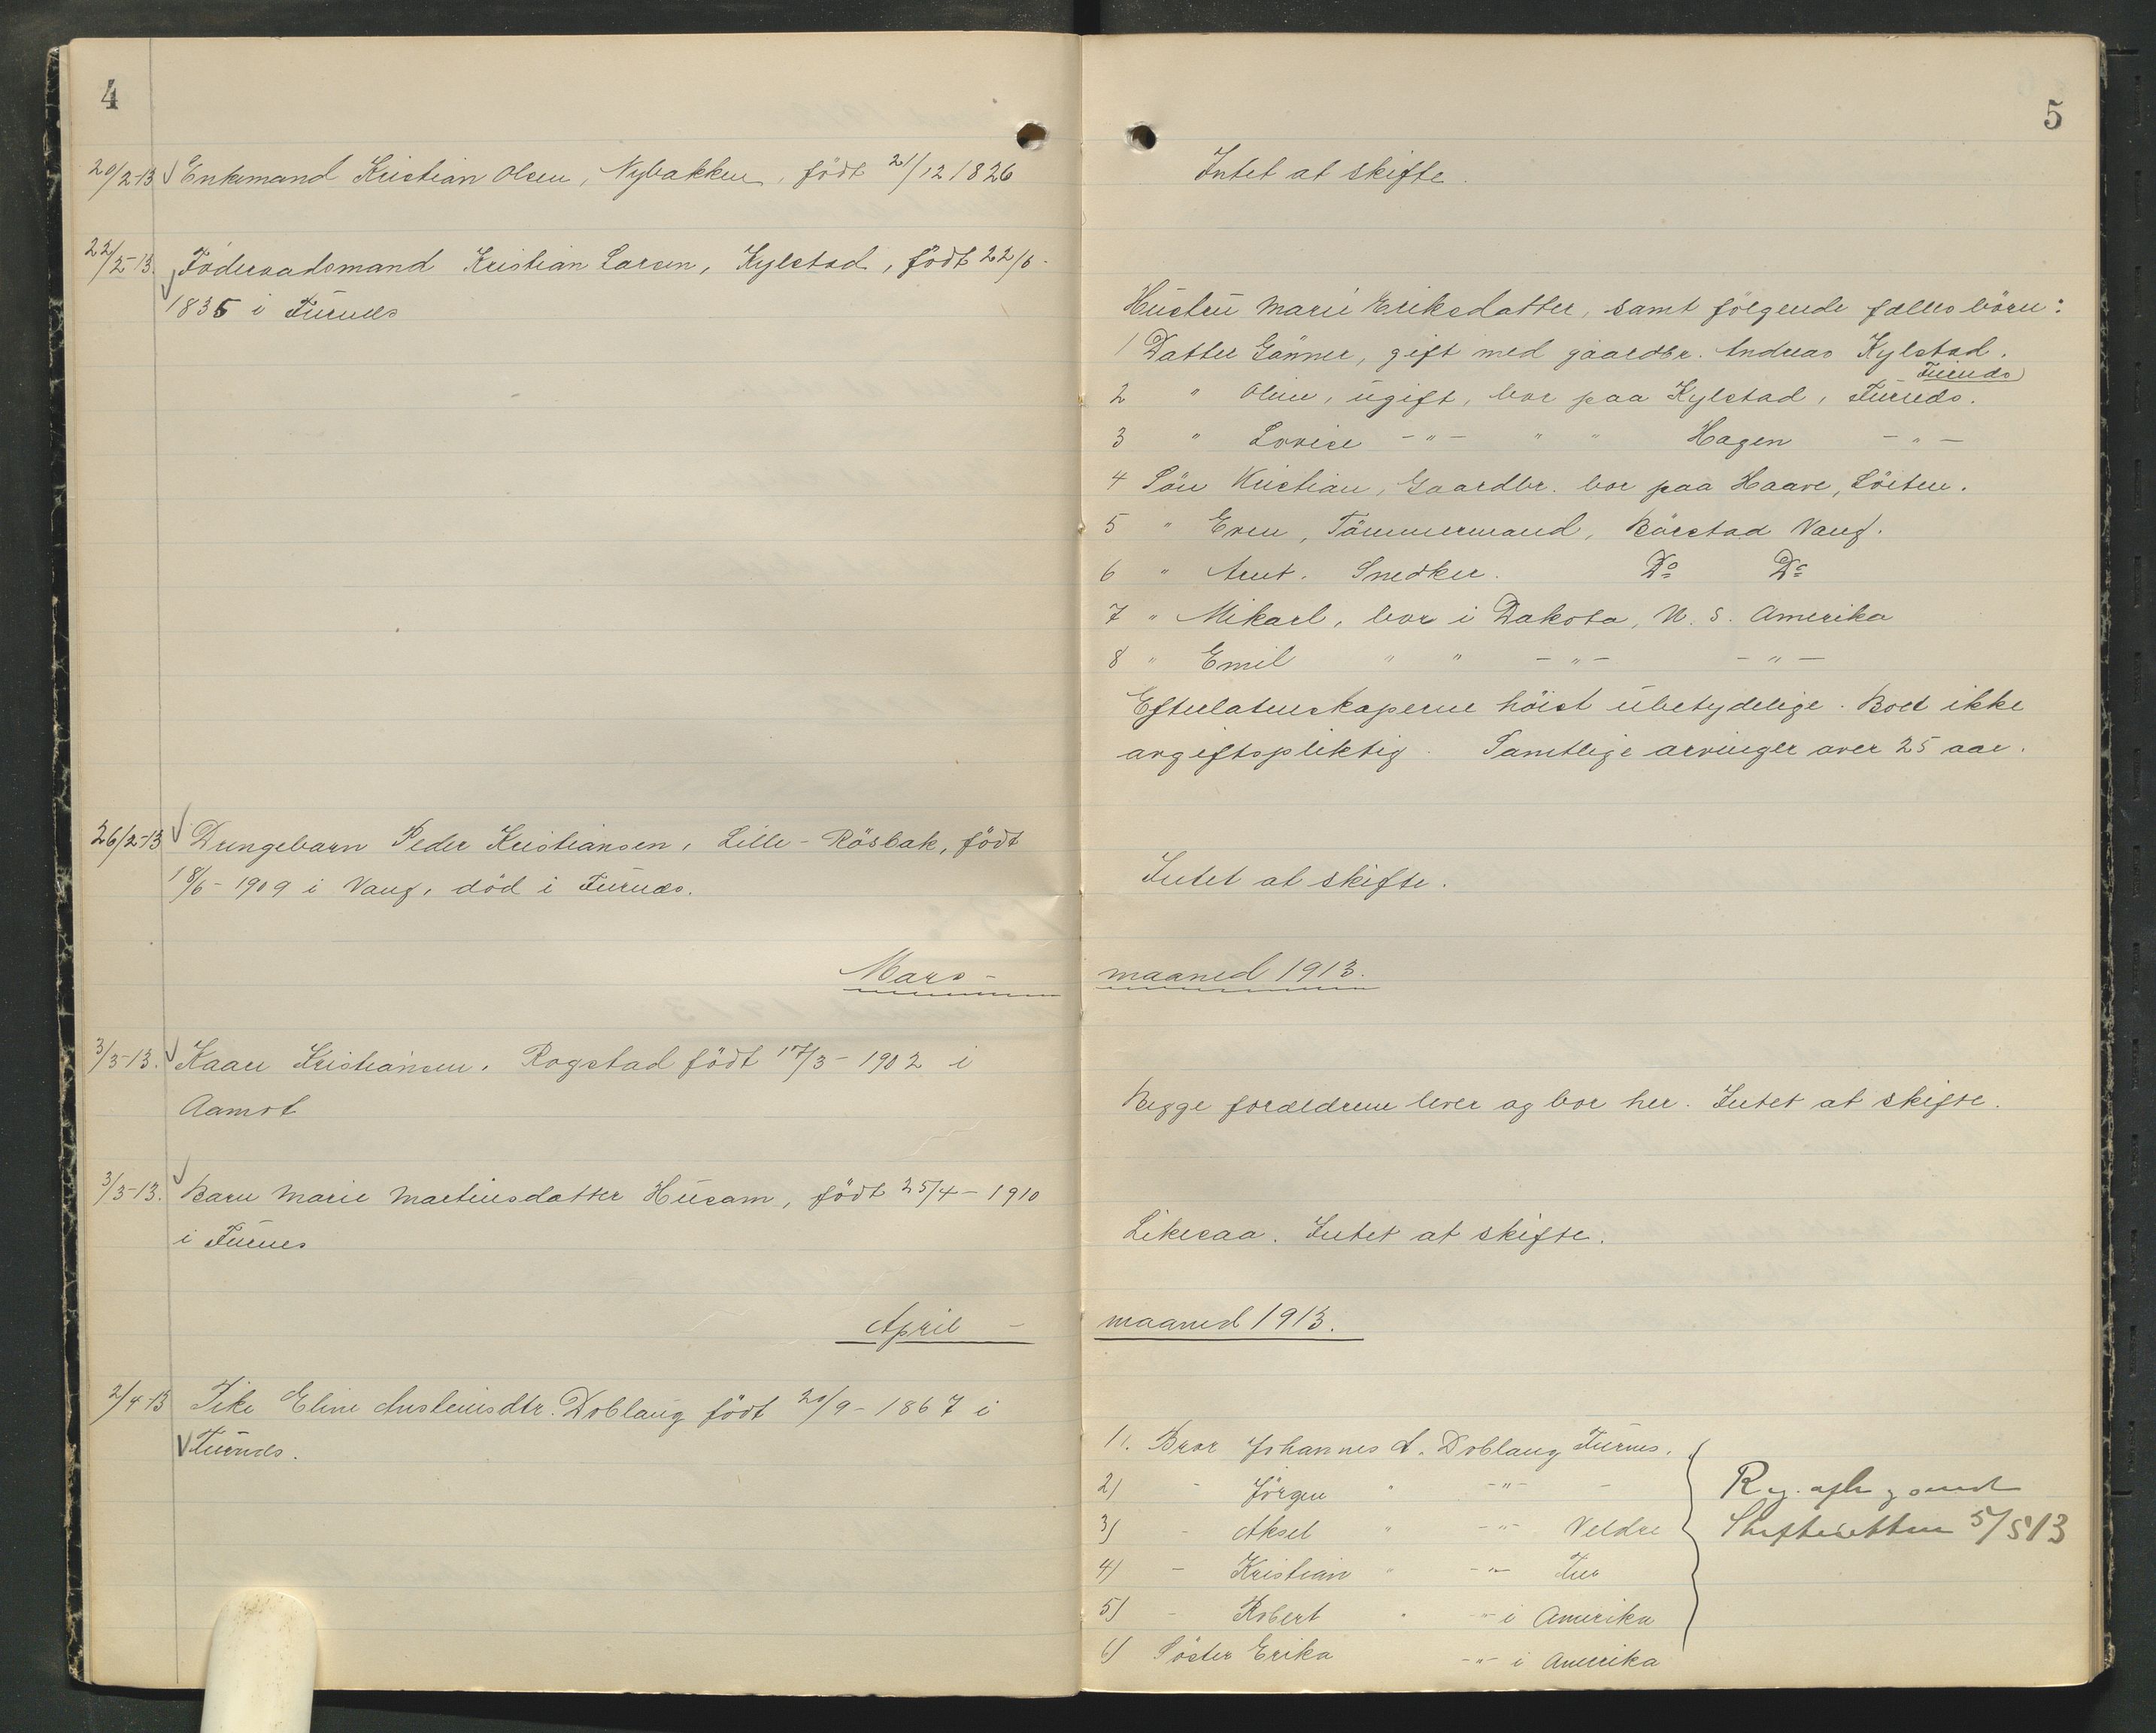 4
20/2-13 Enkemand Kristian Olsen, Nybakken, födt 21/12 1826
22/2-13. Föderaadsmand Kristian Larsen, Kylstad, födt 22/6-
1835 i Furnes
26/2-13 Drengebarn Peder Kristiansen, Lille-Rösbak, födt
18/6-1909 i Vang, död i Furnes.
Mars -
3/3-13. Kaare Kristiansen, Rogstad födt 17/3-1902 i
Aamot
3/3-13. Barn Marie Martinsdatter Husam, födt 25/4-1910
i Furnes
April -
2/4-13 Pike Eline Austeinsdtr. Doblaug födt 20/9-1867 i
Furnes.
5
Intet at skifte.
Hustru Marie Eriksdatter, samt fölgende fælles börn:
1 Datter Gunner, gift med gaardbr. Andreas Kylstad.
Furnes
2 " Oline, ugift, bor paa Kylstad, Furnes.
3 " Lovise -"- " " Hagen -"-
4 Sön Kristian, Gaardbr. bor paa Haave, Löiten.
5 " Even, Tömmermand, Börstad Vang.
6 " Arnt. Snedker. Do Do
7 " Mikael, bor i Dakota, N. S. Amerika
8 " Emil " " -"- -"-
Efterlatenskaperne höist ubetydelige. Boet ikke
avgiftspliktig. Samtlige arvinger over 25 aar.
Intet at skifte.
maaned 1913.
Begge forældrene lever og bor her. Intet at skifte.
Likesaa. Intet at skifte.
maaned 1913.
1). Bror Johannes A. Doblaug Furnes.
2) - Jörgen " -"- -
3) - Aksel " -"- Veldre
4) - Kristian " -"- Fur
5) - Robert " -"- i Amerika
6) Söster Erika -"- i Amerika
Reg. afh. g sendt
Skifteretten 5/5 13